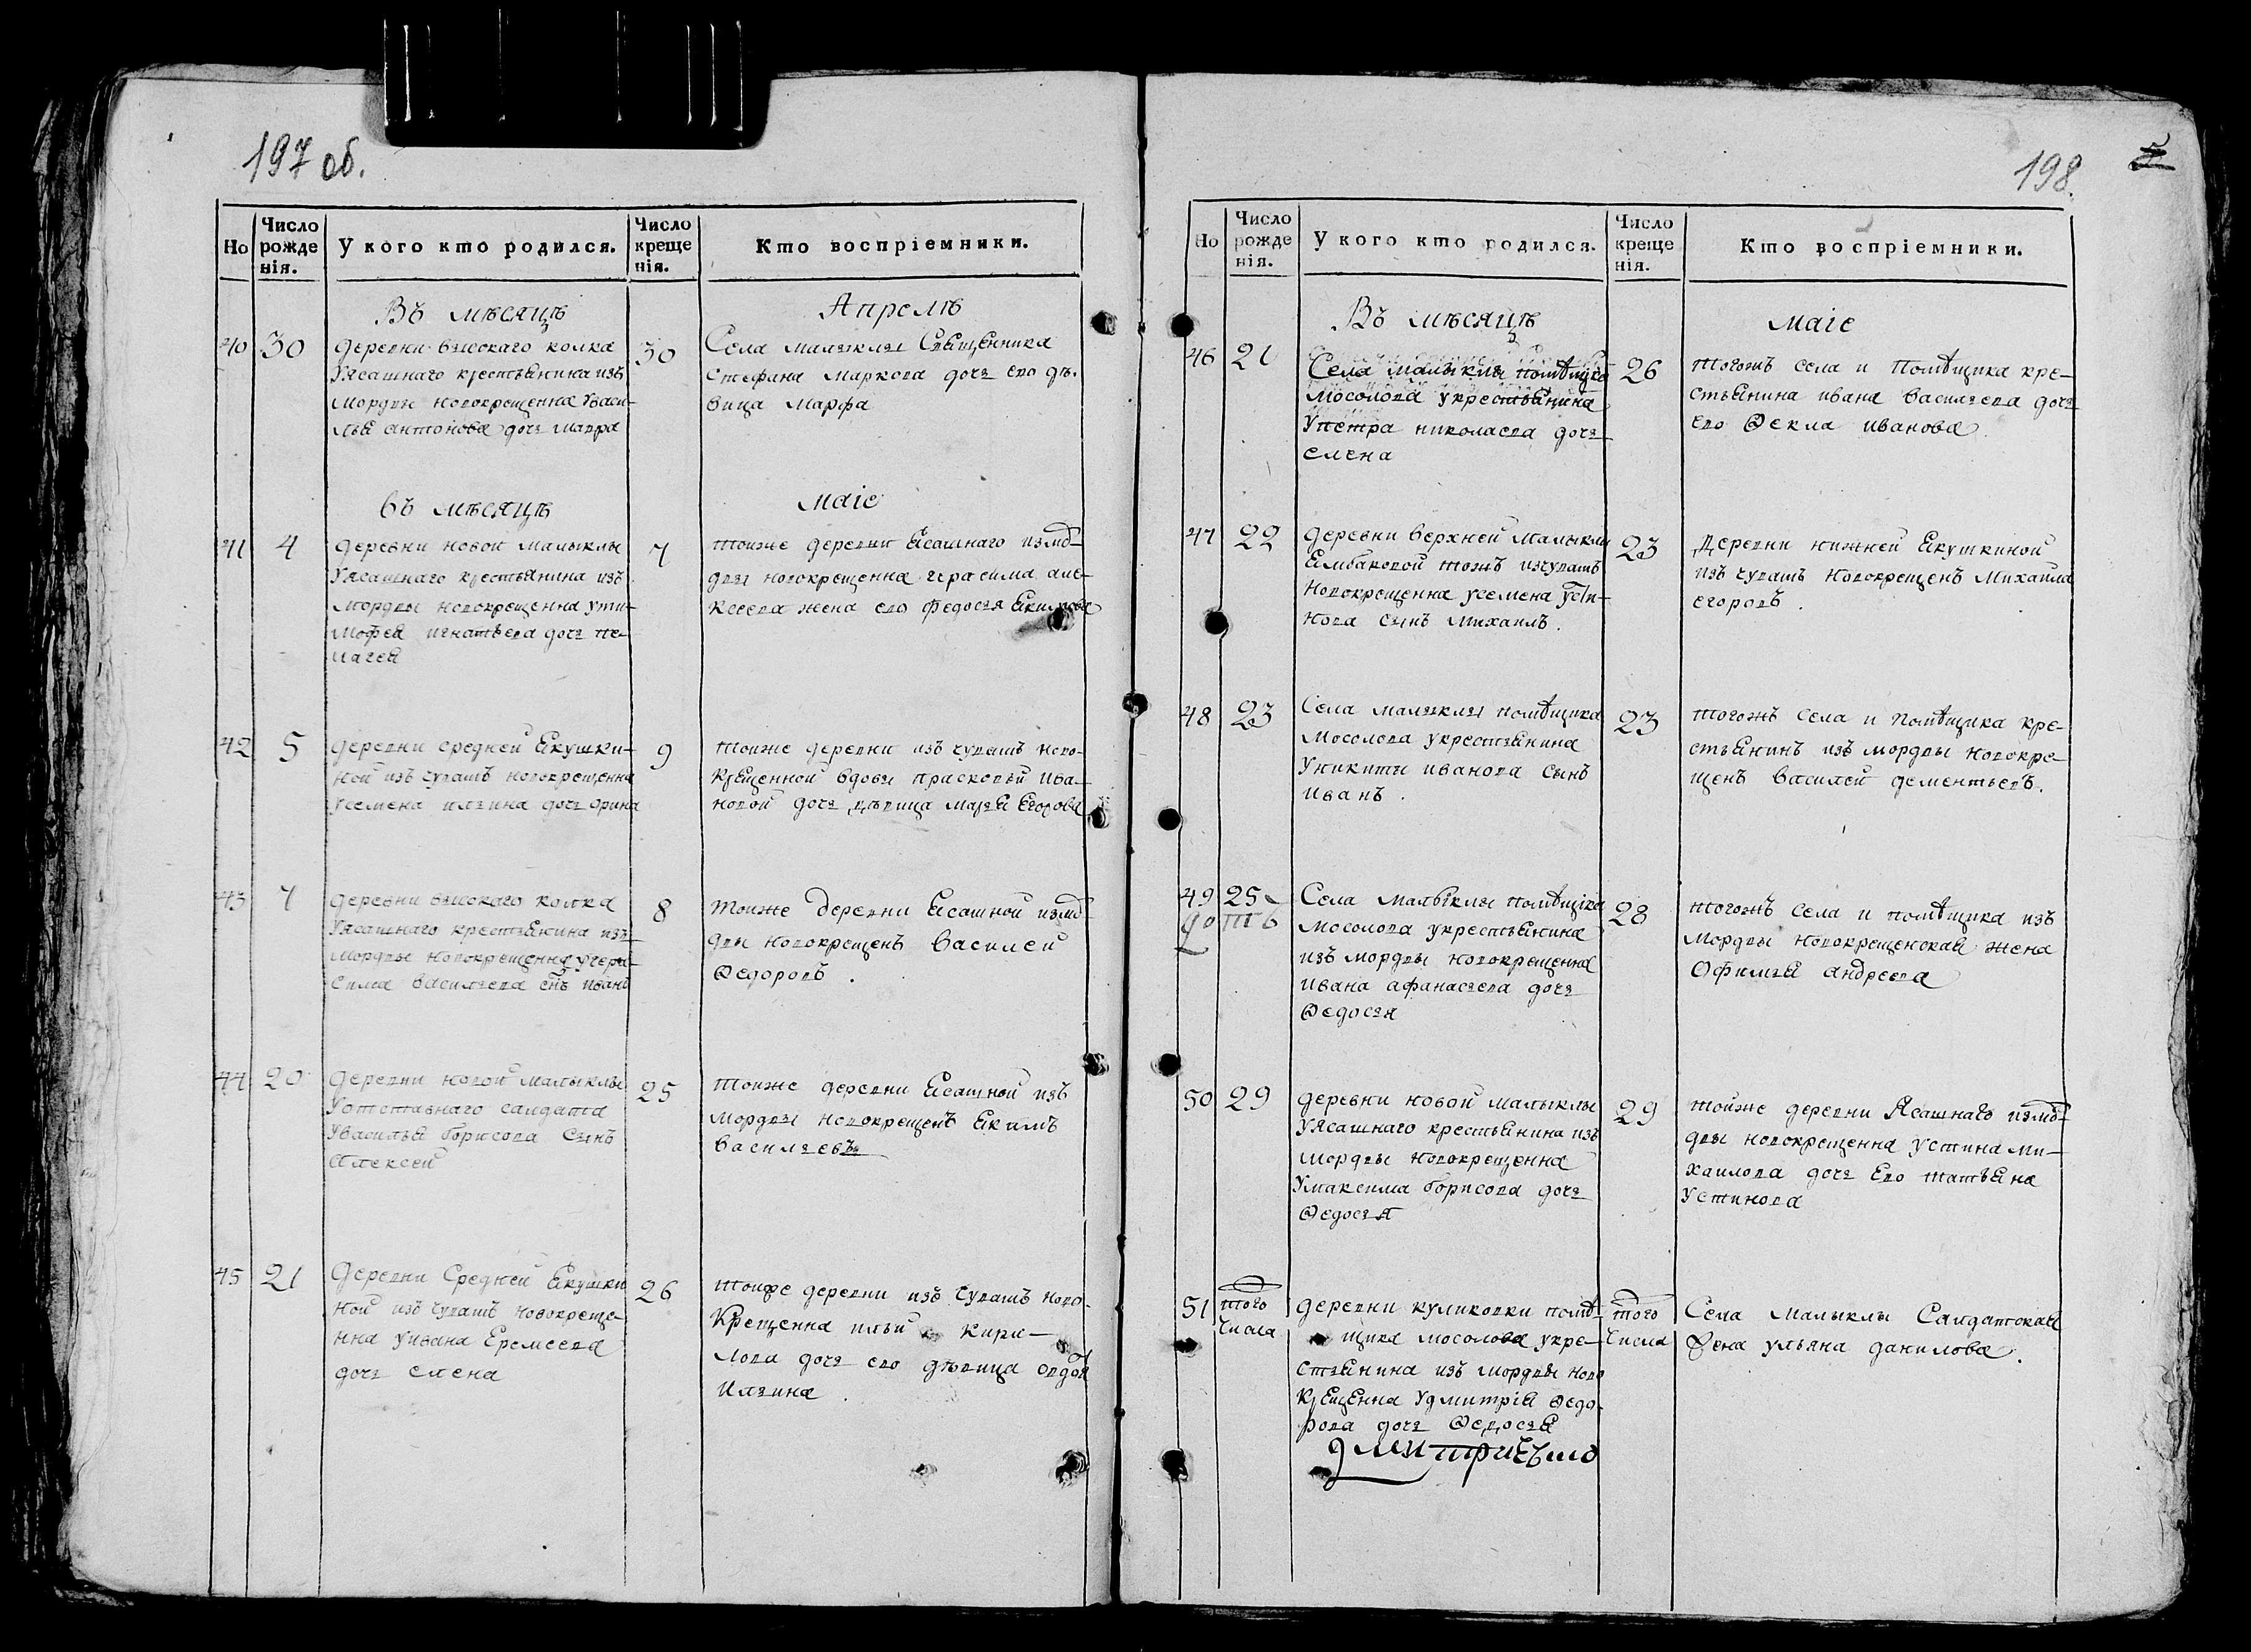 197 об.
Но
Число рожде нія.
У кого кто родился.
Число креще нія.
Кто воспріемники.
Въ мѣсяцѣ
Апрелѣ
40
30
деревни высокаго колка
Уясашнаго крестьянина изъ
Мордвы новокрещенна Уваси-
лья антонова дочь Мавра
30
Села малыклы Священника
Стефана Маркова дочь его дѣ-
вица Марфа
въ мѣсяцѣ
маіе
41
4
деревни новой малыклы
Уясашнаго крестьянина изъ
Мордвы новокрещенна ути-
мофея игнатьева дочь пе-
лагея
7
тоиже деревни Ясашнаго измо-
двы новокрещенна герасима але-
ксеева жена его федосья
42
5
деревни средней Якушки-
ной изъ чувашъ новокрещенна
усемена ильина дочь орина
9
тоиже деревни изъ чувашъ ново-
крещенной вдовы прасковьи ива-
новой дочь дѣвица марья Егорова
43
7
деревни высокаго колка
Уясашнаго крестьянина изъ
мордвы новокрещенна угера-
сима васильева снъ иванъ
8
тоиже деревни Ясашной измо-
двы новокрещенъ василей
Ѳедоровъ .
44
20
деревни новой малыклы
Уотставнаго салдата
Увасилья борисова сынъ
Алексей
25
тоиже деревни Ясашной изъ
мордвы новокрещенъ Якимъ
васильевъ
45
21
Деревни Средней Якушки
ной изъ чувашъ новокреще-
нна уивана Еремеева
дочь елена
26
тоиже деревни изъ чувашъ ново-
крещенна ильи кири-
лова дочь его дѣвица
Ильина .
198.
Но
Число рожде нія.
У кого кто родился.
Число креще нія.
Кто воспріемники.
Въ мѣсяцѣ
маіе
46
21
Села малыклы помѣщика
Мосолова укрестьянина
Упетра николаева дочь
елена
26
тогожъ села и Помѣщика кре-
стьянина ивана васильева дочь
его Ѳекла иванова
47
22
деревни верхней малыклы
Елмбаковой тожъ изчувашъ
новокрещенна усемена усти-
нова сынъ михаилъ .
23
Деревни нижней Якушкиной
изъ чувашъ новокрещенъ Михаила
егоровъ .
48
23
Села малыклы помѣщика
Мосолова укрестьянина
Уникиты иванова сынъ
иванъ .
23
тогожъ села и помѣщика кре-
стьянинъ изъ мордвы новокре-
щенъ василей дементьевъ .
49
25
Села малыклы помѣщика
мосолова укрестьянина
изъ мордвы новокрещенна
ивана афанасьева дочь
Ѳедосья
28
тогожъ села и помѣщика изъ
мордвы новокрещенская жена
Офимья андреева
50
29
деревни новой малыклы
Уясашнаго крестьянина изъ
мордвы новокрещенна
Умаксима борисова дочь
Ѳедосья
29
тойже деревни Ясашнаго измо-
двы новокрещенна устина ми-
хаилова дочь Его татьяна
Устинова
51
того
числа
деревни куликовки помѣ-
щика мосолова укре-
стьянина изъ мордвы ново
крещенна Удмитрія Ѳедо-
рова дочь Ѳедосья
того
числа
Села малыклы Салдатская
жена ульяна данилова .